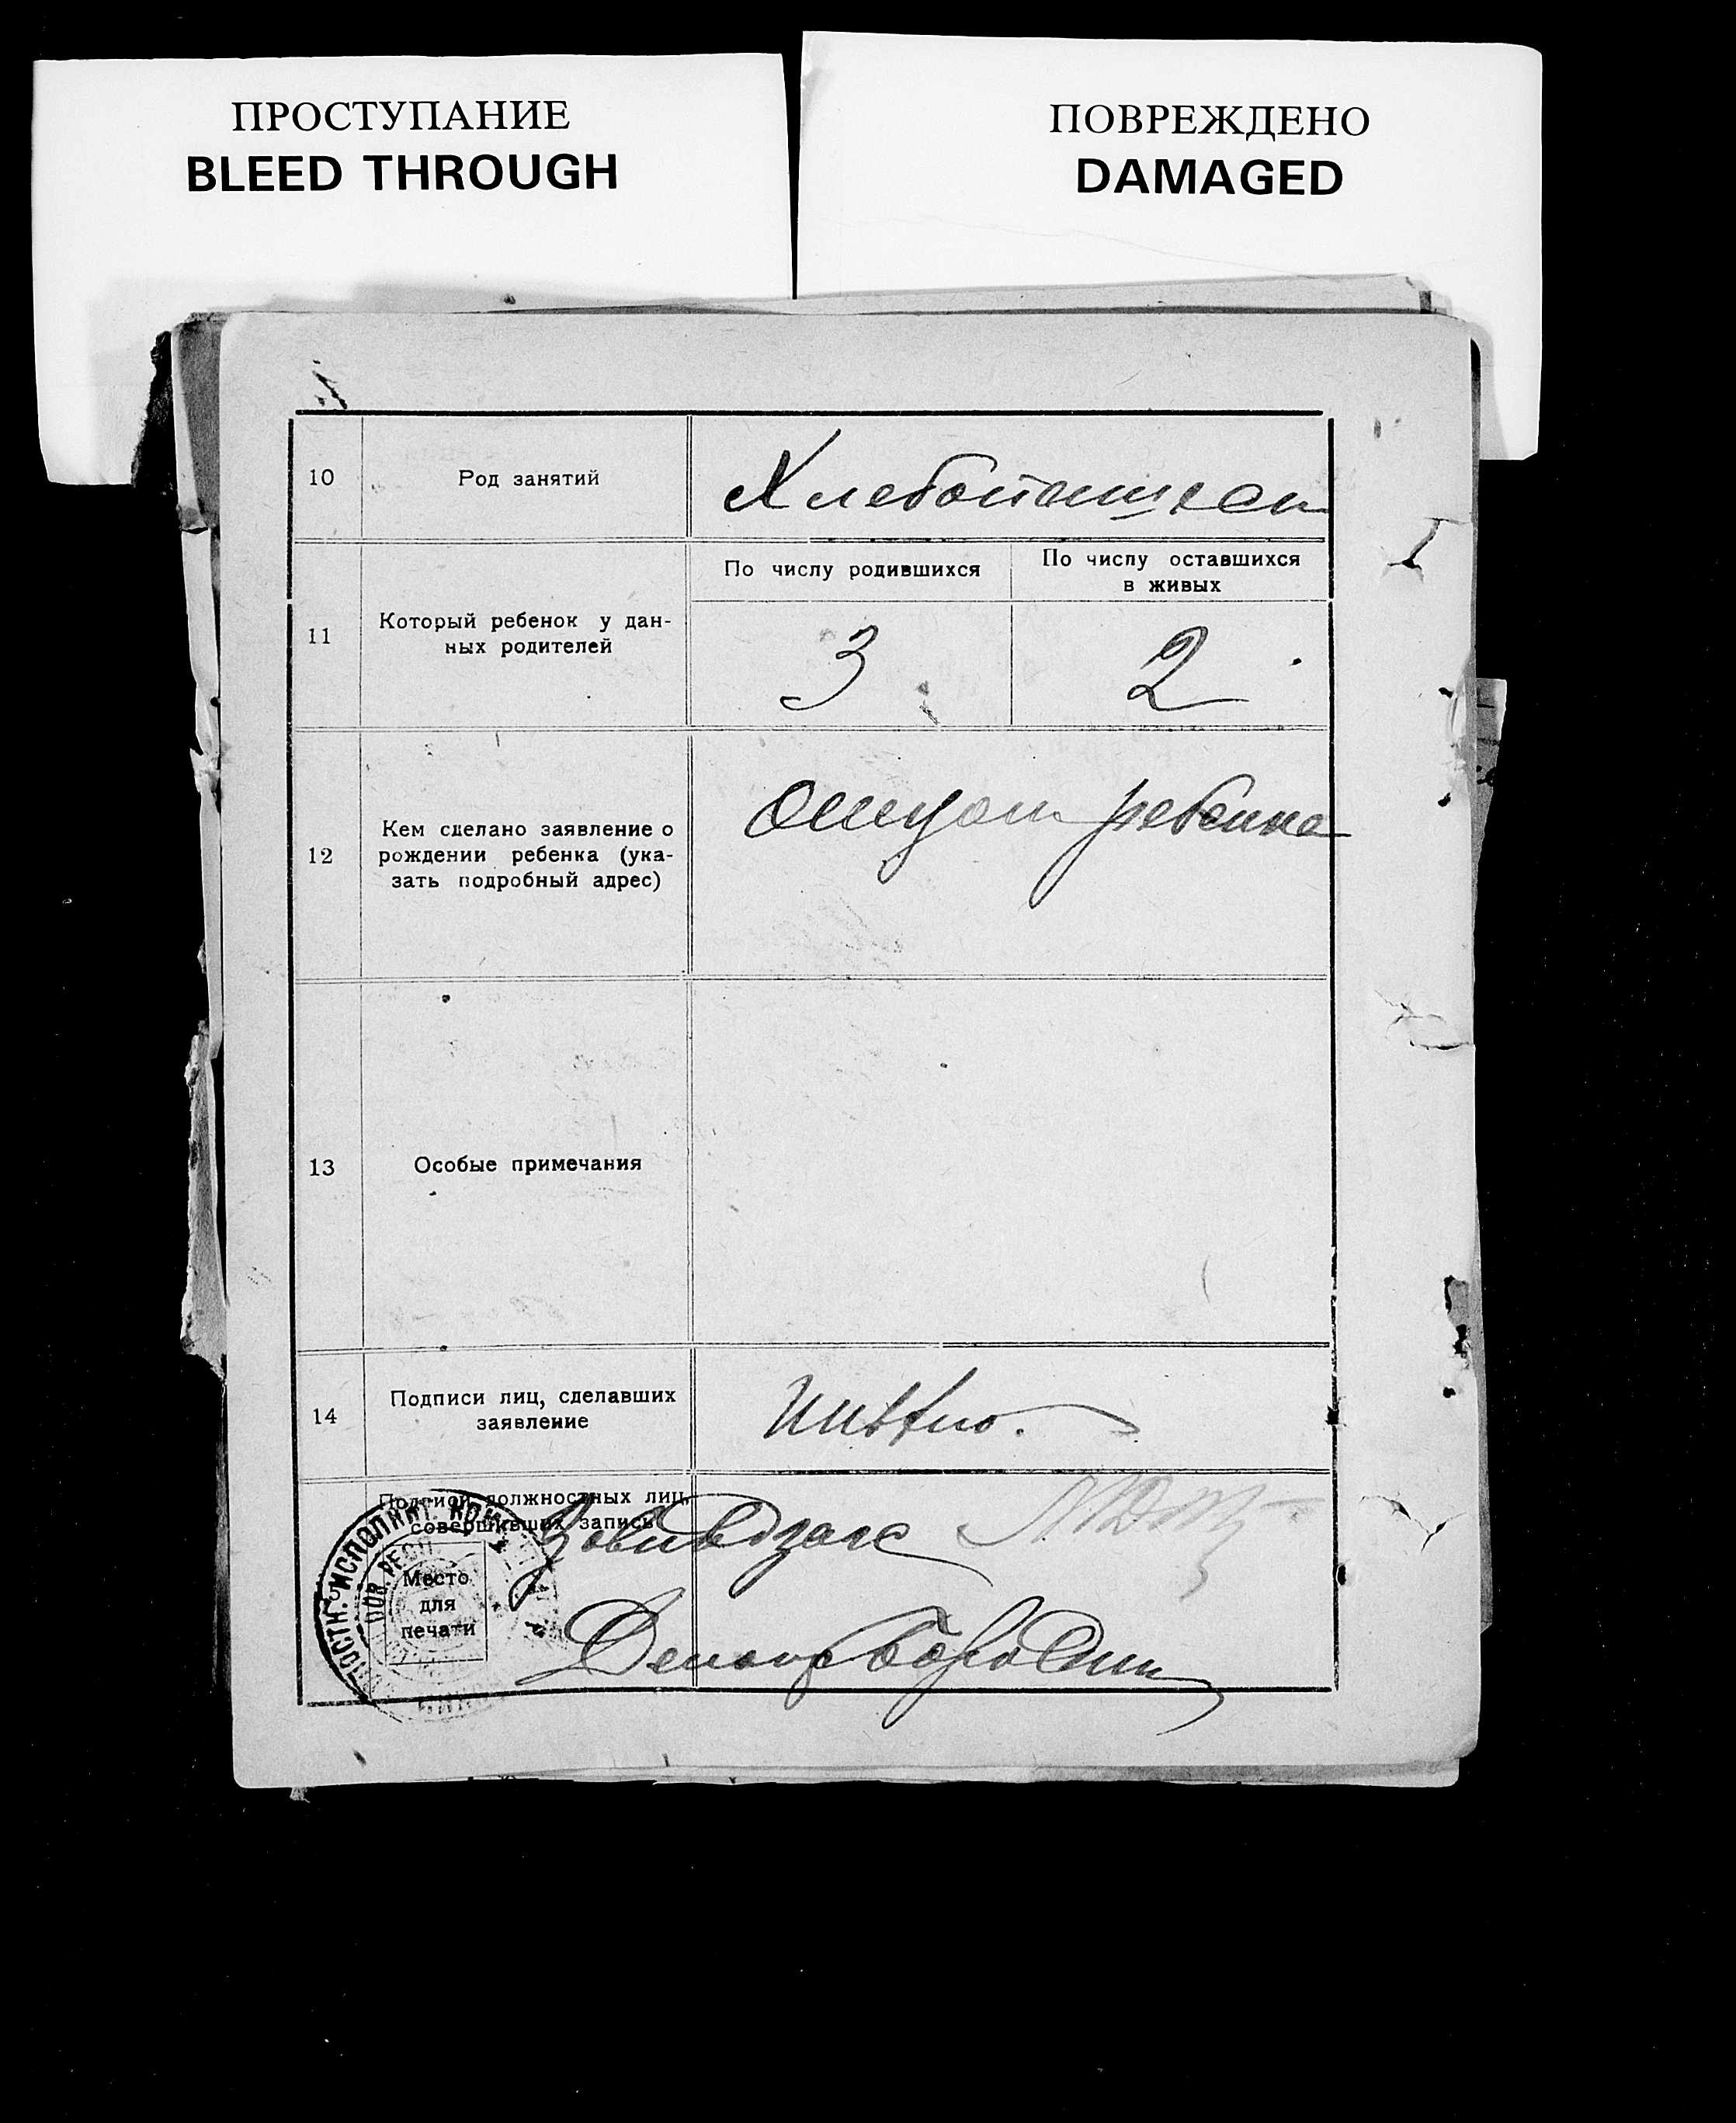 ПРОСТУПАНИЕ
BLEED THROUGH
ПОВРЕЖДЕНО
DAMAGED
10
Род занятий
Хлебопашеск
11
Который ребенок у дан-
ных родителей
По числу родившихся
По числу оставшихся
в живых
3
2
12
Кем сделано заявление о
рождении ребенка (ука-
зать подробный адрес)
отцом ребенка
13
Особые примечания
14
Подписи лиц, сделавших
заявление
Подписи должностных лиц,
совершивших запись
Место
для
печати
ИСПОЛНИТ.
Делопр Бородин